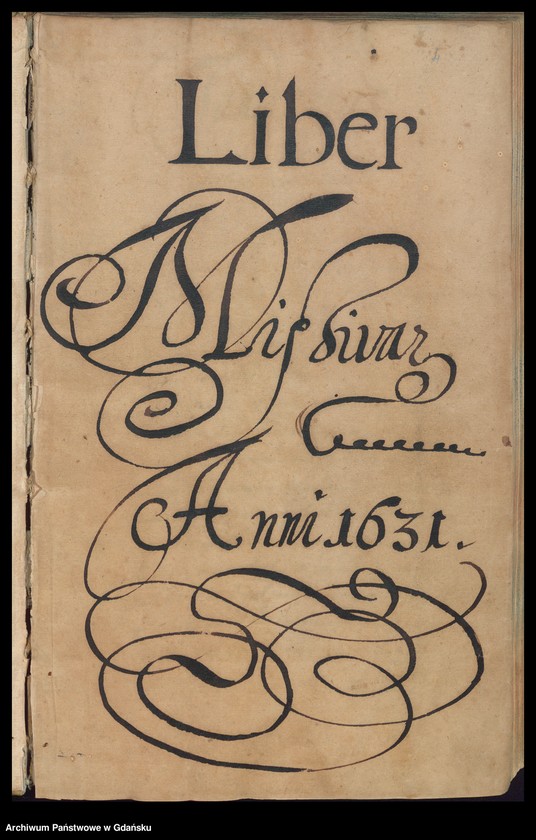 Liber
Missivar
Anni 1631.
Archiwum Państwowe w Gdańsku